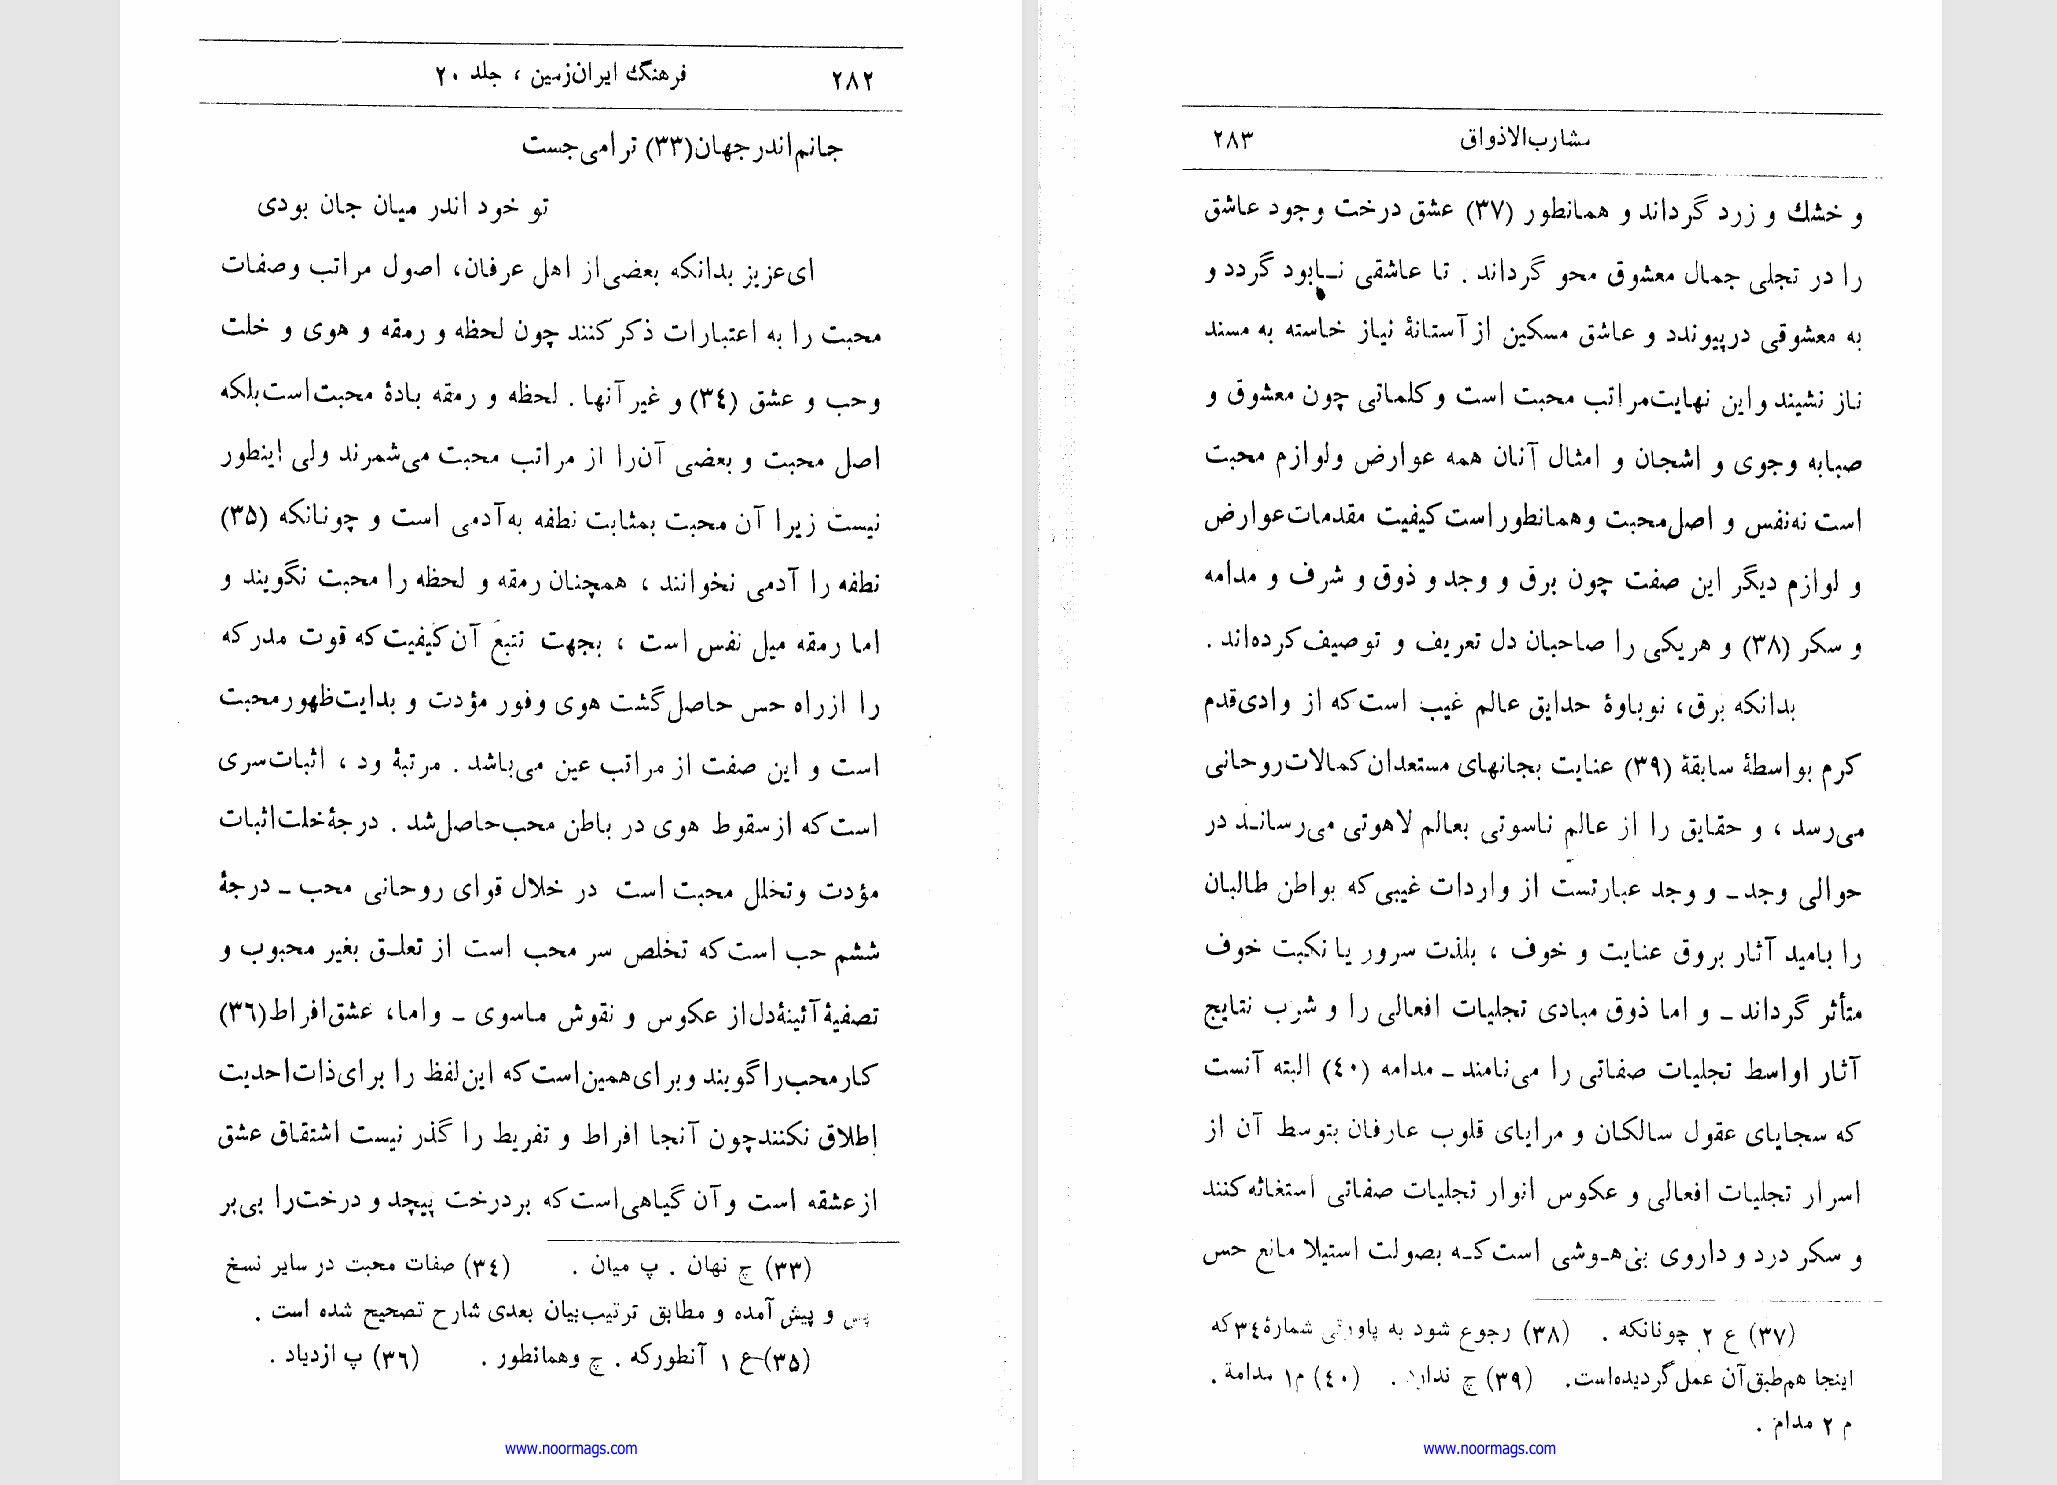 ۲۸۲ فرهنگ ایران‌زمین ، جلد ۲۰
جانم‌اندرجهان(۳۳) ترامی‌جست
تو خود اندر میان جان بودی
ای‌عزیز بدانکه بعضی‌از اهل عرفان، اصول مراتب وصفات
محبت را به اعتبارات ذکرکنند چون لحظه و رمقه و هوی و خلت
وحب و عشق (۳٤) و غیرآنها . لحظه و رمقه بادهٔ محبت‌است‌بلکه
اصل محبت و بعضی آن‌را از مراتب محبت می‌شمرند ولی اینطور
نیست زیرا آن محبت بمثابت نطفه به‌آدمی است و چونانکه (۳۵)
نطفه را آدمی نخوانند ، همچنان رمقه و لحظه را محبت نگویند و
اما رمقه میل نفس است ، بجهت تتبع آن‌کیفیت‌که قوت مدرکه
را ازراه حس حاصل‌گشت هوی وفور مؤدت و بدایت‌ظهورمحبت
است و این صفت از مراتب عین می‌باشد . مرتبهٔ ود ، اثبات‌سری
است‌که ازسقوط هوی در باطن محب‌حاصل‌شد . درجهٔ‌خلت‌اثبات
مؤدت وتخلل محبت است در خلال قوای روحانی محب ـ درجهٔ
ششم حب است‌که تخلص سر محب است از تعلـق بغیر محبوب و
تصفیهٔ‌آئینهٔ‌دل‌از عکوس و نقوش ماسوی ـ واما، عشق‌افراط(۳٦)
کارمحب‌راگویند وبرای‌همین‌است‌که این‌لفظ را برای‌ذات‌احدیت
اطلاق نکنندچون آنجا افراط و تفریط را گذر نیست اشتقاق عشق
ازعشقه است وآن گیاهی‌است‌که بردرخت پیچد و درخت‌را بی‌بر
(۳۳) چ نهان . پ میان . (۳٤) صفات محبت در سایر نسخ
پس و پیش‌آمده و مطابق ترتیب‌بیان بعدی شارح تصحیح شده است .
(۳۵)ع ۱ آنطورکه . چ وهمانطور . (۳٦) پ ازدیاد .
www.noormags.com
مشارب‌الاذواق ۲۸۳
و خشك و زرد گرداند و همانطور (۳۷) عشق درخت وجود عاشق
را در تجلی جمال معشوق محو گرداند . تا عاشقی نـابود گردد و
به معشوقی درپیوندد و عاشق مسکین ازآستانهٔ نیاز خاسته به مسند
ناز نشیند واین نهایت‌مراتب محبت است وکلماتی چون معشوق و
صبابه وجوی و اشجان و امثال آنان همه عوارض ولوازم محبت
است نه‌نفس و اصل‌محبت وهمانطوراست‌کیفیت مقدمات‌عوارض
و لوازم دیگر این صفت چون برق و وجد و ذوق و شرف و مدامه
و سکر (۳۸) و هریکی را صاحبان دل تعریف و توصیف‌کرده‌اند .
بدانکه برق، نوباوهٔ حدایق عالم غیب است‌که از وادی‌قدم
کرم بواسطهٔ سابقهٔ (۳۹) عنایت بجانهای مستعدان‌کمالات‌روحانی
می‌رسد ، و حقایق را از عالم ناسوتی بعالم لاهوتی می‌رسانـد در
حوالی وجد ـ و وجد عبارتست از واردات غیبی‌که بواطن طالبان
را بامید آثار بروق عنایت و خوف ، بلذت سرور یا نکبت خوف
متأثر گرداند ـ و اما ذوق مبادی تجلیات افعالی را و شرب نتایج
آثار اواسط تجلیات صفاتی را می‌نامند ـ مدامه (٤۰) البته آنست
که سجایای عقول سالکان و مرایای قلوب عارفان بتوسط آن از
اسرار تجلیات افعالی و عکوس انوار تجلیات صفاتی استغاثه‌کنند
و سکر درد و داروی بی‌هـوشی است‌کـه بصولت استیلا مانع حس
(۳۷) ع ۲ چونانکه . (۳۸) رجوع شود به پاورقی شمارهٔ۳٤که
اینجا هم‌طبق‌آن عمل‌گردیده‌است. (۳۹) چ ندارد . (٤۰) م۱ مدامة .
م ۲ مدام .
www.noormags.com